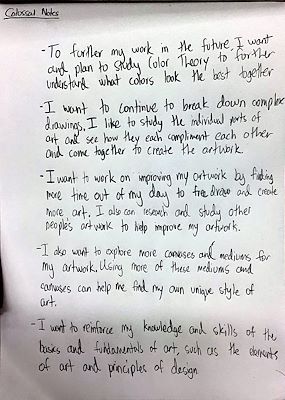 Colossal Notes
- To further my work in the future, I want
and plan to study Color Theory to further
understand what colors look the best together
- I want to continue to break down complex
drawings. I like to study the individual parts of
art and see how they each compliment each other
and come together to create the artwork.
- I want to work on improving my artwork by finding
more time out of my day to free draw and create
more art. I also can research and study other
peoples artwork to help improve my artwork.
- I also want to explore more canvases and mediums for
my artwork. Using more of these mediums and
canvases can help me find my own unique style of
art.
- I want to reinforce my knowledge and skills of the
basics and fundamentals of art, such as the elements
of art and principles of design